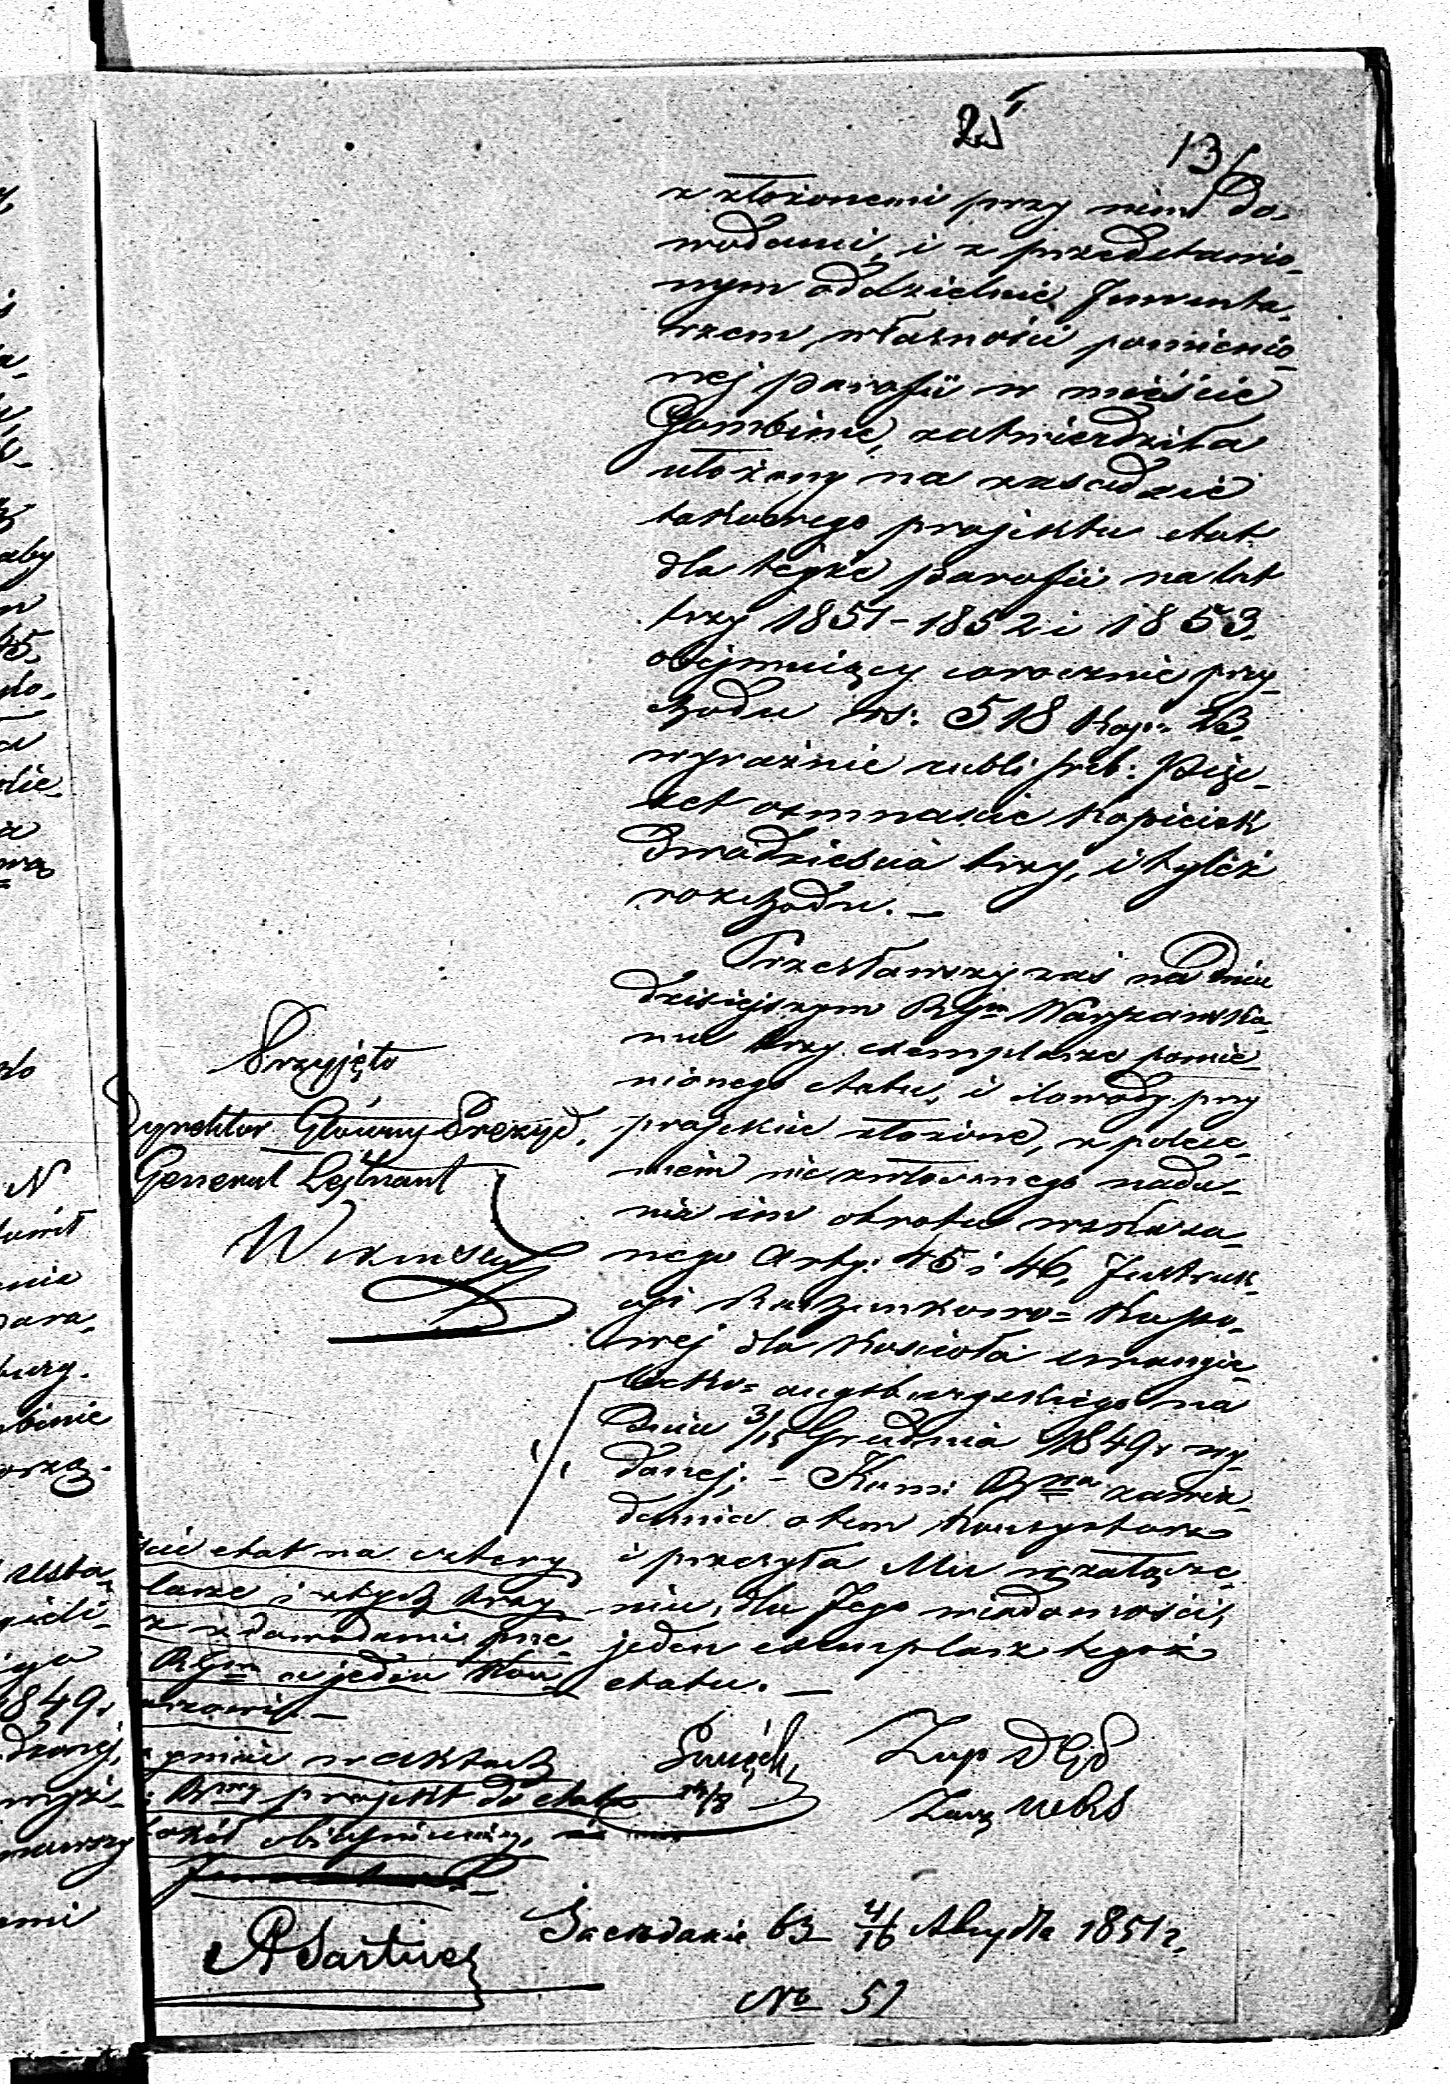 13
z złożonemi przy nim do-
wodami, i z przedstawio-
nym oddzielnie Inwenta-
rzem, własności pomienio-
nej Parafii w mieście
Gombinie, zatwierdziła
ułożony na zasadzie
takowego projektu etat
dla tejże parafii na lat
trzy 1851 - 1852 i 1853.
obejmujący corocznie przy-
chodu rs: 518 kop: 23.
wyraźnie rubli sreb: Pięć-
set ośmnaście kopiejek
dwadzieścia trzy, i tyleż
rozchodu. —
Przesławszy zaś na dniu
dzisiejszym RGm Warszawskie-
mu trzy exemplarze pomie-
nionego etatu, i dowody przy
projekcie złożone, z polece-
niem niezwłocznego nada-
nia im obrotu wskaza-
nego Arty: 45 i 46, Instruk-
cyi Rachunkowo= Kasso-
wej dla Kościoła ewangie-
licko= augsburgskiego na
Dniu 3/15 Grudnia 1849 r wy-
danej. - Kom: Rzna zawia-
damia o tem Konsystorz
i przesyła Mu w załącze-
niu, dla Jego wiadomości,
jeden exemplarz tegoż
etatu. —
Przyjęto
Dyrektor Główny Prezyd.
Generał Lejtnant
Wikinski
etat na cztery
i z tych trzy
z dowodami prze
RGm a jeden Kon
w aktach
projekt do etatu
Zup
Zarz
A Sartius
Na Posiedzenie 63 4/16 1851 r.
No 51